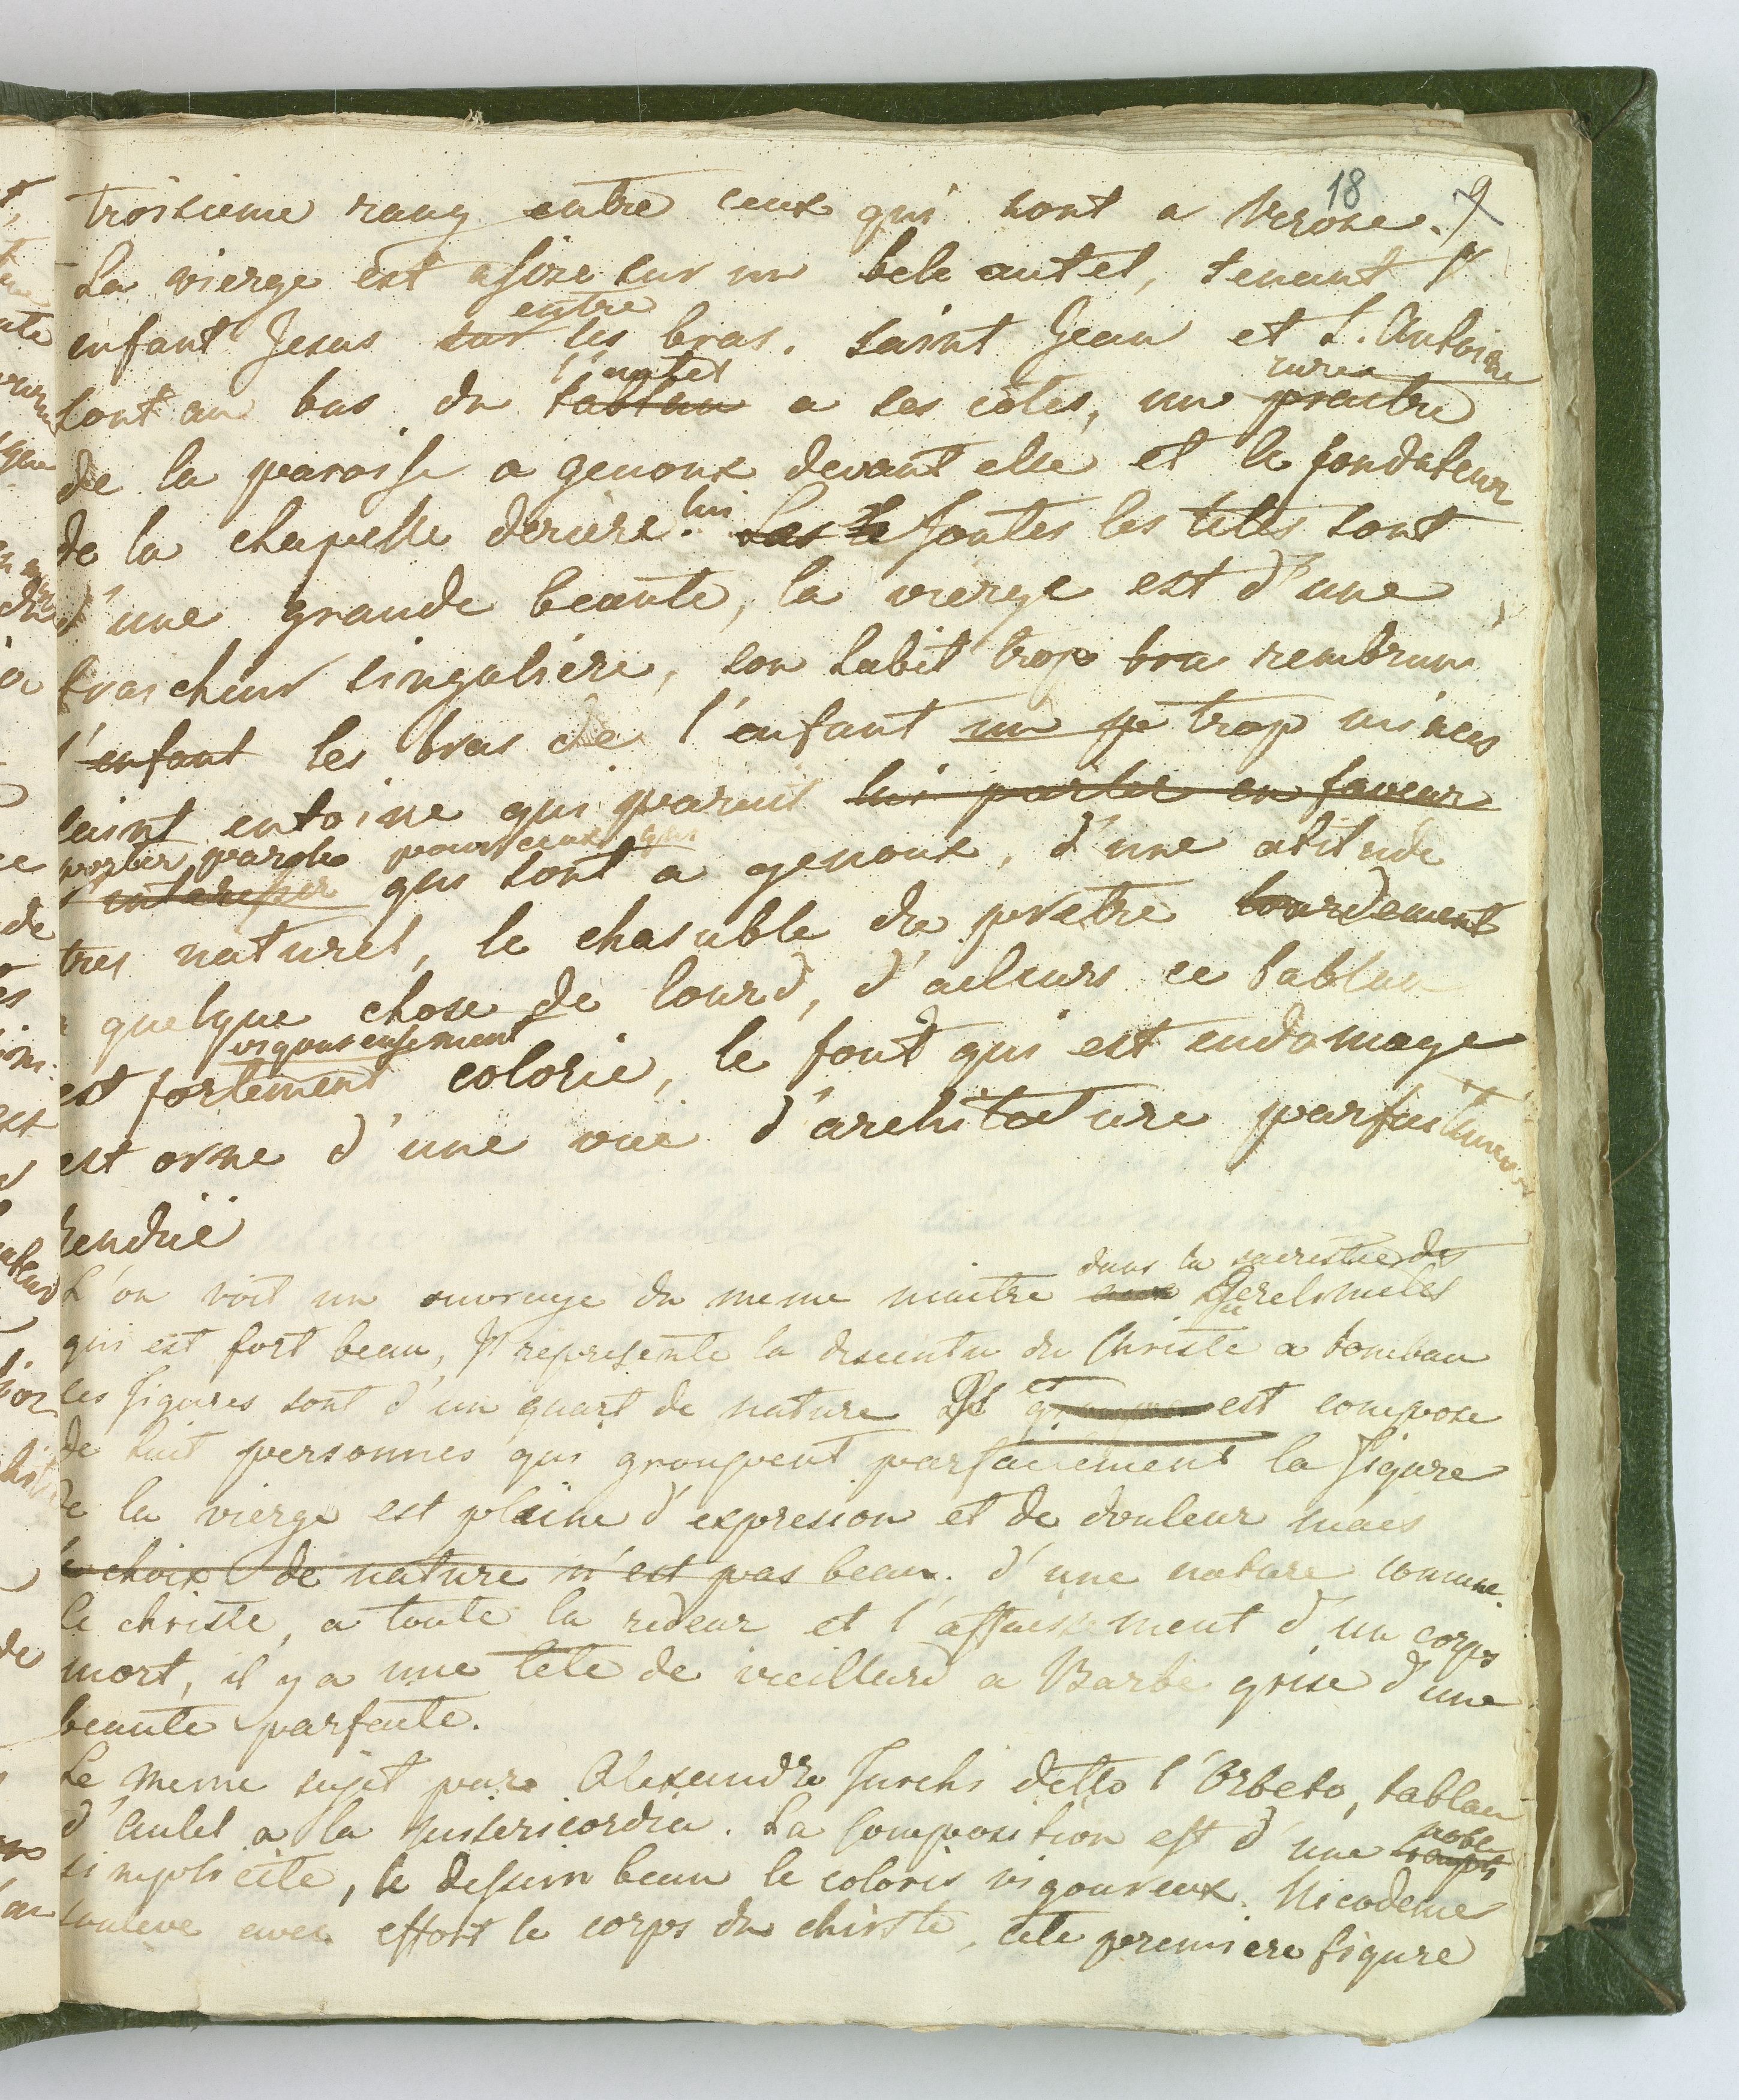 18 9
troisieme rang entre ceux qui sont a Verone.
La vierge est assise sur un bele autel, tenant l'
entre
enfant Jesus sur les bras. saint Jean et S. Antoine
l'autel curé
sont au bas du tableau a ses côtes, un praitre
de la paroisse a genoux devant elle et le fondateur
de la chapelle deriere lui. Les te toutes les tetes sont
d'une grande beaute, la vierge est d'une
fraicheur singuliere, son habit trop bru rembruni
l'enfant les bras de l'enfant un pe trop minces
saint entoine qui parait lui parler en faveur
porter parole pour ceux qui
l'interesser qui sont a genoux, d'une atitude
tres naturel, le chasuble du pretre lourdement
a quelque chose de lourd, d'ailleurs ce tableau
vigoureusement
est fortement colorie, le font qui est endomage
est orne d'une vuë d'architecture parfaitement
renduë
dans la sacristie des
L'on voit un ouvrage du meme maitre aux Gerelomites
qui est fort beau, Il represente la descente du Christe a tombeau
les figures sont d'un quart de nature Il est compose
de huit personnes qui groupent parfaitement la figure
de la vierge est plaine d'expresion et de douleur mais
le choix de nature n'est pas beau. d'une nature comune.
le christe, a toute la rideur et l'affaissement d'un corps
mort, il y a une tete de vieillard a Barbe grise d'une
beaute parfaite.
Le meme sujet par Alexandre Turchi detto l'Orbeto, tableau
d'autel a la Misericordia. La composition est d'une noble
simplicite, le dessein beau le coloris vigoureux. Nicodeme
souleve avec effort le corps du chirste, cete premiere figure